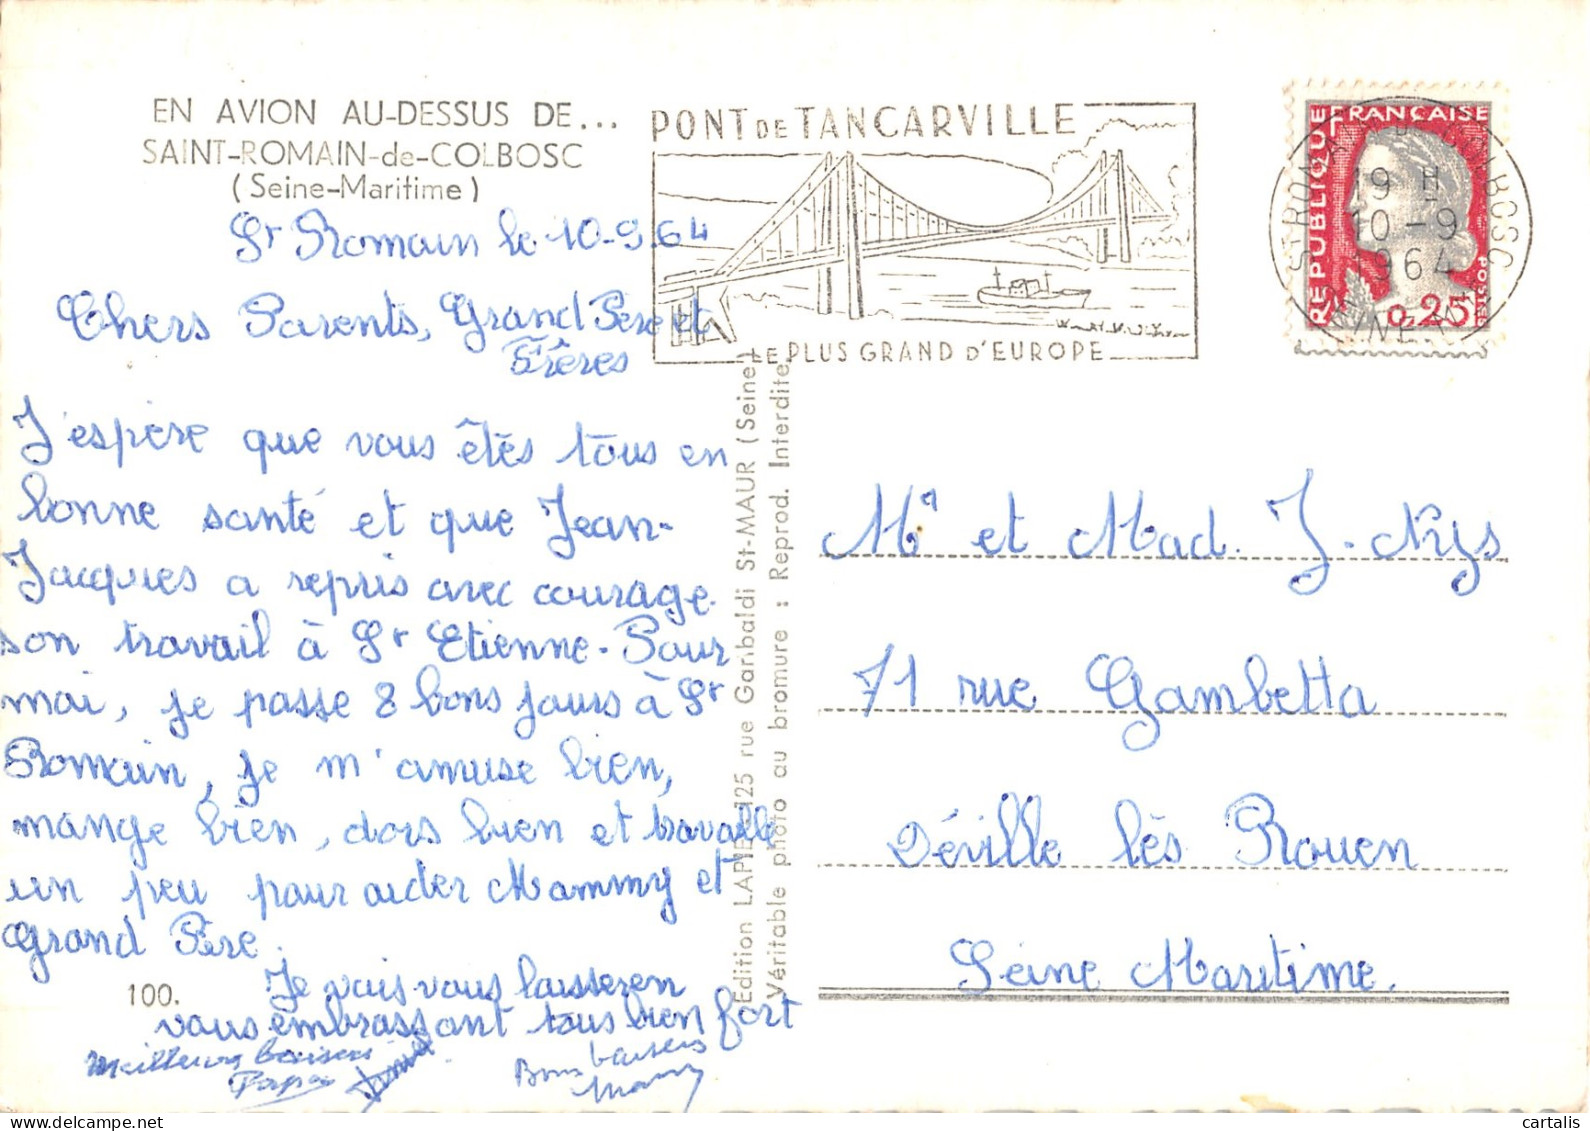 EN AVION AU-DESSUS DE...
SAINT-ROMAIN-de-COLBOSC
(Seine-Maritime)
St Romain le 10-9.64
Chers Parents, Grand Père et
Frères
J'espère que vous êtes tous en
bonne santé et que Jean-
Jacques a repris avec courage
son travail à St Etienne. Pour
moi, je passe 8 bons jours à St
Romain, je m'amuse bien,
mange bien, dors bien et travaille
un peu pour aider Mammy et
Grand Père.
Je vais vous laisser en
vous embrassant tous bien fort
Meilleurs baisers
Papa
Bons baisers
Mamy
100.
PONT DE TANCARVILLE
LE PLUS GRAND D'EUROPE
Edition LAPIE 125 rue Garibaldi St-MAUR (Seine)
Véritable photo au bromure : Reprod. Interdite
REPUBLIQUE FRANÇAISE
POSTES
0,25
ST ROMAIN DE COLBOSC
19 H
10-9
1964
SEINE M.
Mr et Mad. J. Nys
71 rue Gambetta
Déville lès Rouen
Seine Maritime.
cartalis
delcampe.net